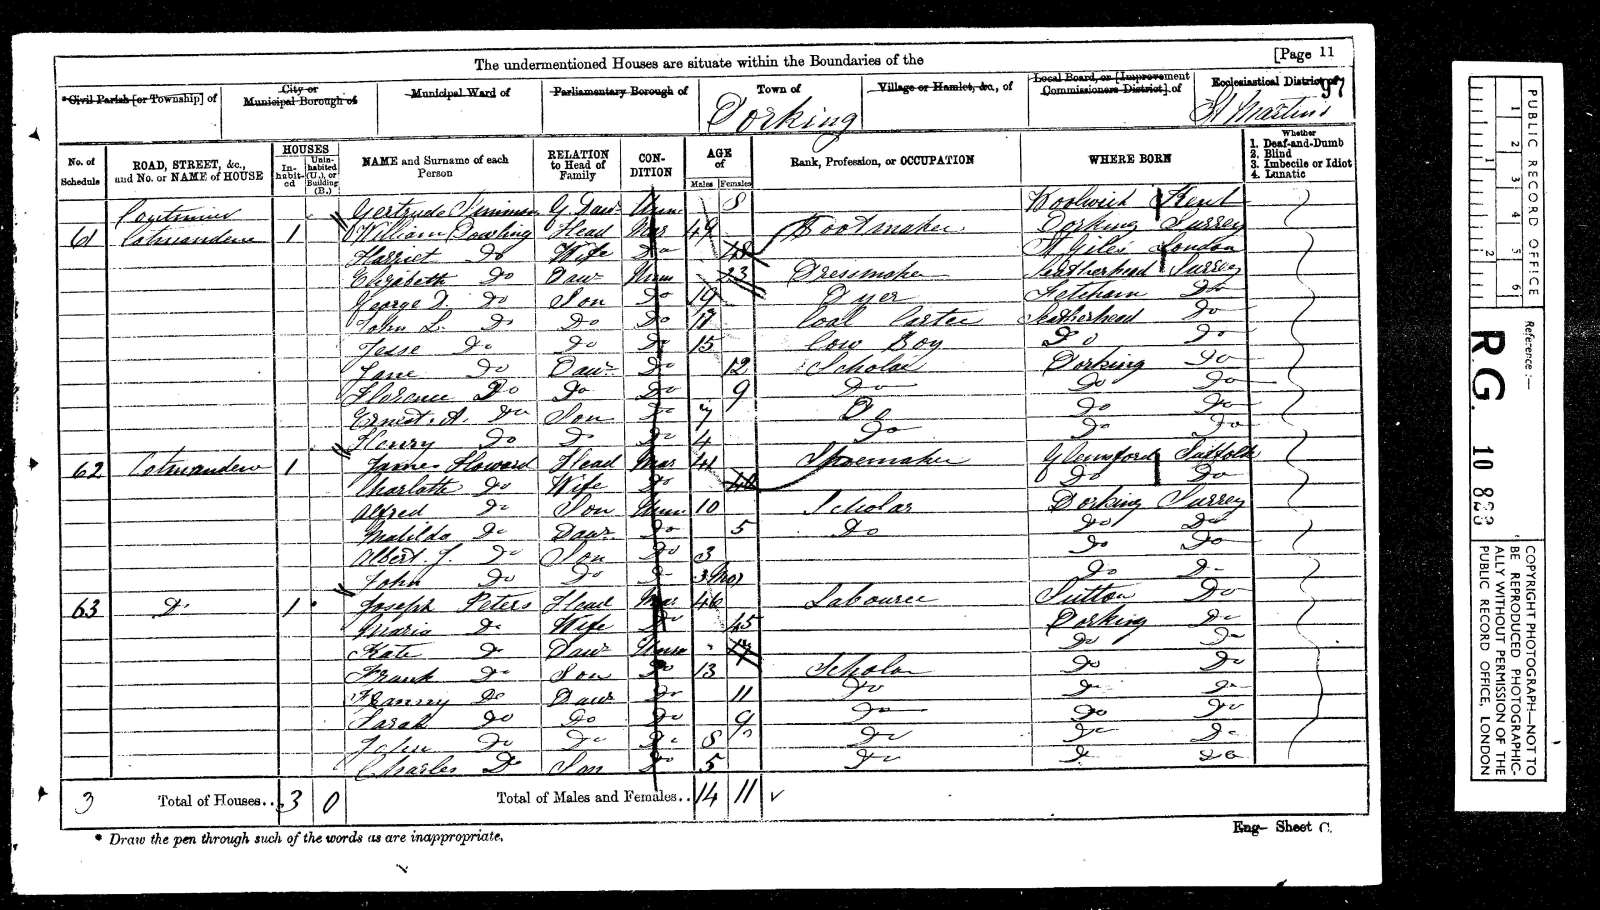 The undermentioned Houses are situate within the Boundaries of the [Page 11
*Civil Parish [or Township] of | City or Municipal Borough of | Municipal Ward of | Parliamentary Borough of | Town of | Village or Hamlet, &c., of | Local Board, or [Improvement Commissioners District] of | Ecclesiastical District of
97
Dorking | St Martin's
No. of Schedule | ROAD, STREET, &c., and No. or NAME of HOUSE | HOUSES In-habit-ed | Unin-habited (U.), or Building (B.) | NAME and Surname of each Person | RELATION to Head of Family | CON-DITION | AGE of Males | Females | Rank, Profession, or OCCUPATION | WHERE BORN | Whether 1. Deaf-and-Dumb 2. Blind 3. Imbecile or Idiot 4. Lunatic
Gertrude G. Daur Unm 8 Woolwich Kent
61 Cotmandene 1 William Dowling Head Mar 49 Bootmaker Dorking Surrey
Harriet Do Wife Do 48 St Giles London
Elizabeth Do Daur Unm 23 Dressmaker Leatherhead Surrey
George Do Son Do 19 Dyer Fetcham Do
John L. Do Do Do 17 Coal Carter Leatherhead Do
Jesse Do Do Do 15 Cow Boy Do Do
Jane Do Daur Do 12 Scholar Dorking Do
Florence Do Do Do 9 Do Do Do
Ernest A. Do Son Do 7 Do Do Do
Henry Do Do Do 4 Do Do Do
62 Cotmandene 1 James Howard Head Mar 41 Shoemaker Glemsford Suffolk
Charlotte Do Wife Do 40 Do Do
Alfred Do Son Unm 10 Scholar Dorking Surrey
Matilda Do Daur Do 5 Do Do Do
Albert J. Do Son Do 3 Do Do
John Do Do Do 3 Mos Do Do
63 Do 1 Joseph Peters Head Mar 46 Labourer Sutton Do
Maria Do Wife Do 45 Dorking Do
Kate Do Daur Unm Do Do
Frank Do Son Do 13 Scholar Do Do
Fanny Do Daur Do 11 Do Do Do
Sarah Do Do Do 9 Do Do Do
John Do Do Do 8 Do Do Do
Charles Do Son Do 5 Do Do Do
3 Total of Houses.. 3 0 Total of Males and Females.. 14 11
* Draw the pen through such of the words as are inappropriate.
Eng- Sheet C.
PUBLIC RECORD OFFICE
1 2 3 4 5 6
1 2
Reference :—
R.G. 10 823
COPYRIGHT PHOTOGRAPH—NOT TO
BE REPRODUCED PHOTOGRAPHIC-
ALLY WITHOUT PERMISSION OF THE
PUBLIC RECORD OFFICE, LONDON